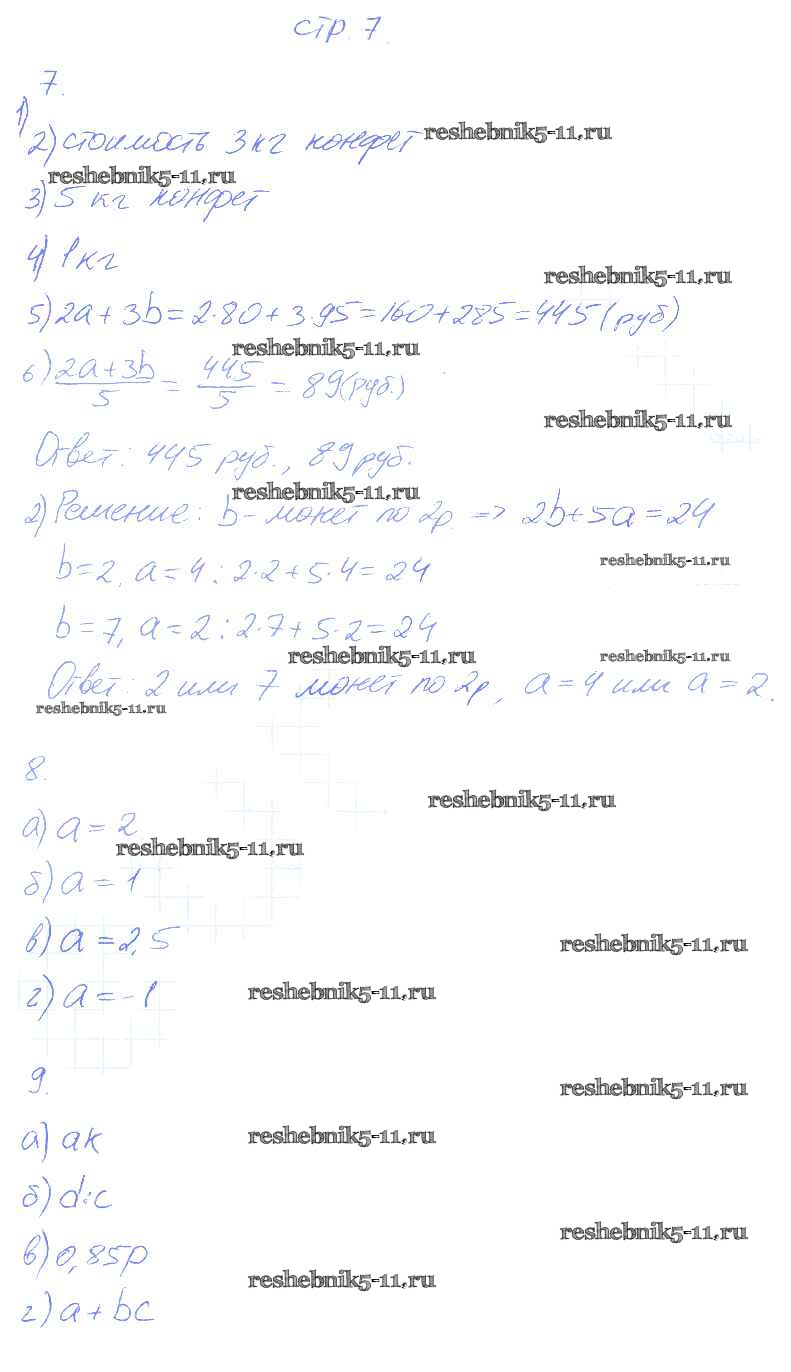 стр. 7.
7.
1)
2) стоимость 3 кг конфет reshebnik5-11.ru
reshebnik5-11.ru
3) 5 кг конфет
4) 1 кг
reshebnik5-11.ru
5) 2a + 3b = 2·80 + 3·95 = 160 + 285 = 445 (руб)
reshebnik5-11.ru
6) (2a+3b)/5 = 445/5 = 89 (руб.)
reshebnik5-11.ru
Ответ: 445 руб., 89 руб.
reshebnik5-11.ru
2) Решение: b - монет по 2р. => 2b + 5a = 24
reshebnik5-11.ru
b = 2, a = 4 : 2·2 + 5·4 = 24
b = 7, a = 2 : 2·7 + 5·2 = 24
reshebnik5-11.ru reshebnik5-11.ru
Ответ: 2 или 7 монет по 2р, a = 4 или a = 2.
reshebnik5-11.ru
8.
reshebnik5-11.ru
а) a = 2
reshebnik5-11.ru
б) a = 1
в) a = 2,5
reshebnik5-11.ru
г) a = -1 reshebnik5-11.ru
9.
reshebnik5-11.ru
а) ak reshebnik5-11.ru
б) d:c
reshebnik5-11.ru
в) 0,85p
reshebnik5-11.ru
г) a + bc